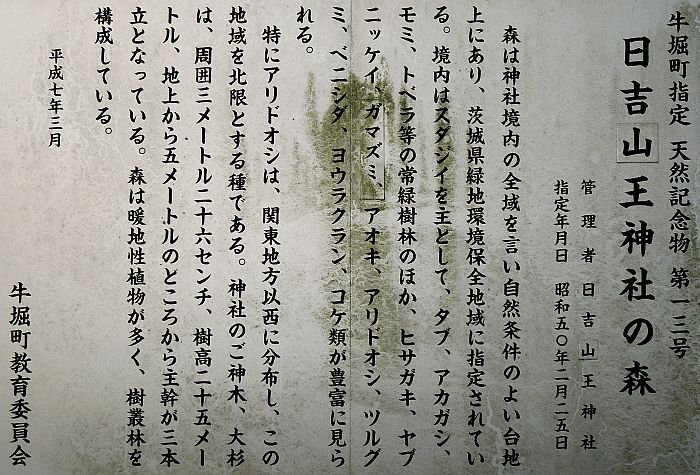 牛堀町指定 天然記念物 第一三号
日吉山王神社の森
管理者 日吉山王神社
指定年月日 昭和五〇年二月二五日
森は神社境内の全域を言い自然条件のよい台地
上にあり、茨城県緑地環境保全地域に指定されてい
る。境内はスダジイを主として、タブ、アカガシ、
モミ、トベラ等の常緑樹林のほか、ヒサガキ、ヤブ
ニッケイ、ガマズミ、アオキ、アリドオシ、ツルグ
ミ、ベニシダ、ヨウラクラン、コケ類が豊富に見ら
れる。
特にアリドオシは、関東地方以西に分布し、この
地域を北限とする種である。神社のご神木、大杉
は、周囲三メートル二十六センチ、樹高二十五メー
トル、地上から五メートルのところから主幹が三本
立となっている。森は暖地性植物が多く、樹叢林を
構成している。
平成七年三月
牛堀町教育委員会